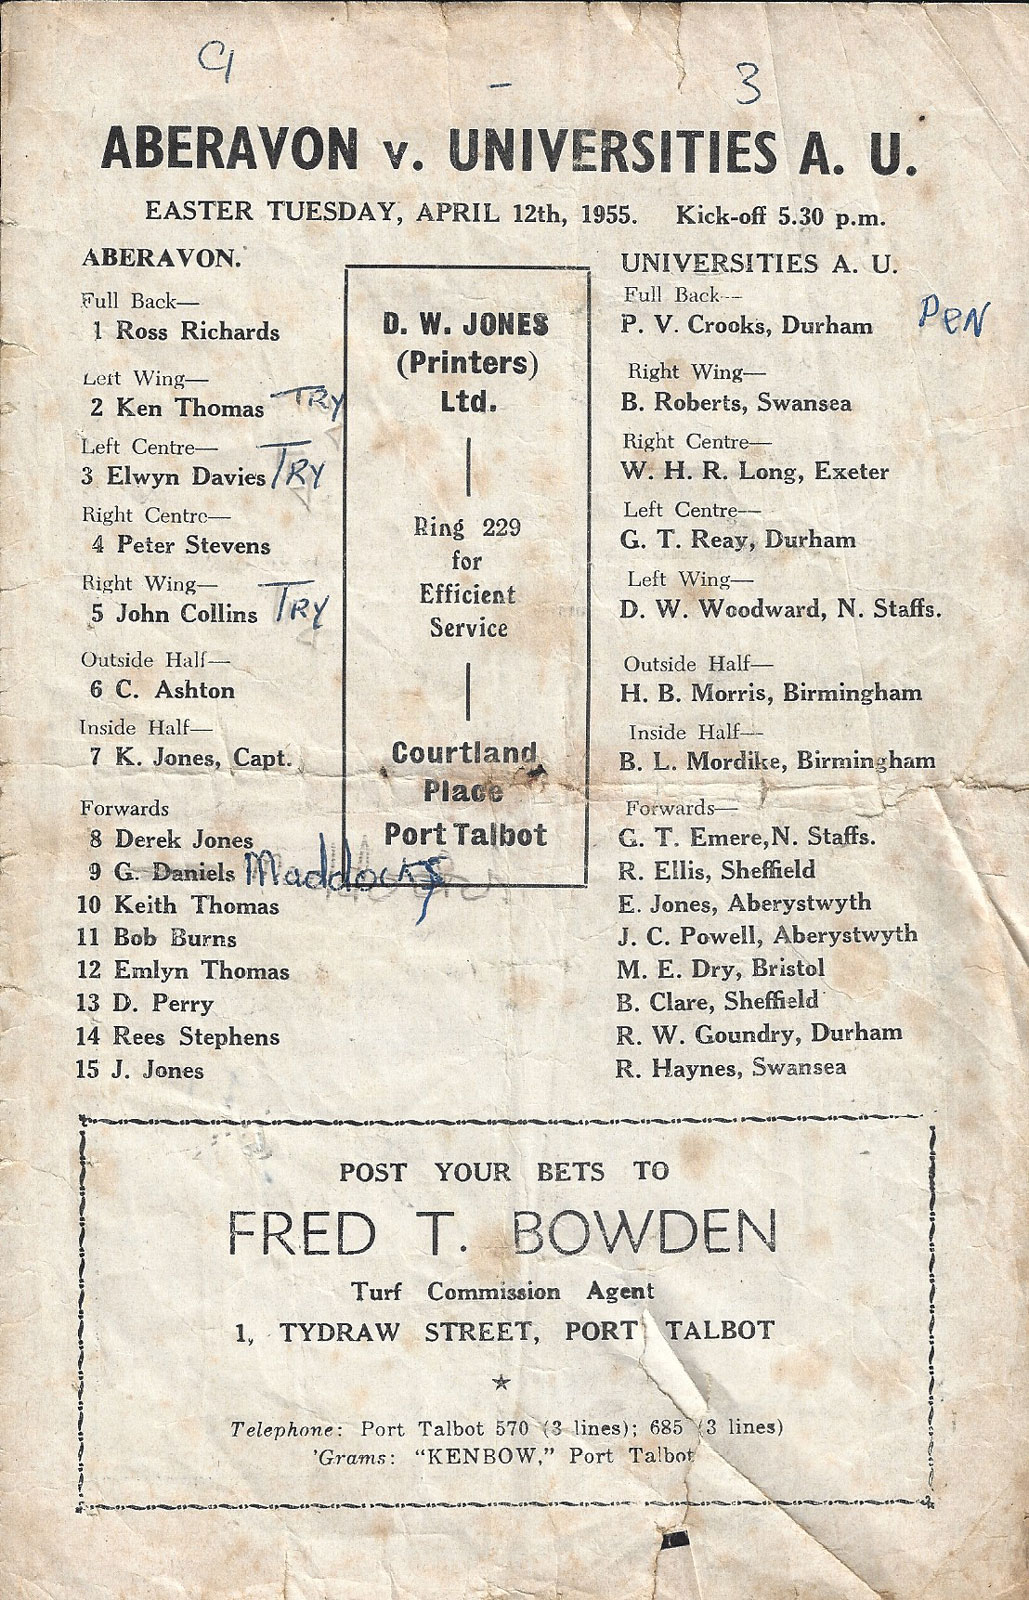 9 - 3
ABERAVON v. UNIVERSITIES A. U.
EASTER TUESDAY, APRIL 12th, 1955. Kick-off 5.30 p.m.
ABERAVON.
Full Back—
1 Ross Richards
Left Wing—
2 Ken Thomas TRY
Left Centre—
3 Elwyn Davies TRY
Right Centre—
4 Peter Stevens
Right Wing—
5 John Collins TRY
Outside Half—
6 C. Ashton
Inside Half—
7 K. Jones, Capt.
Forwards
8 Derek Jones
9 G. Daniels Maddocks
10 Keith Thomas
11 Bob Burns
12 Emlyn Thomas
13 D. Perry
14 Rees Stephens
15 J. Jones
D. W. JONES
(Printers)
Ltd.
Ring 229
for
Efficient
Service
Courtland
Place
Port Talbot
UNIVERSITIES A. U.
Full Back—
P. V. Crooks, Durham PEN
Right Wing—
B. Roberts, Swansea
Right Centre—
W. H. R. Long, Exeter
Left Centre—
G. T. Reay, Durham
Left Wing—
D. W. Woodward, N. Staffs.
Outside Half—
H. B. Morris, Birmingham
Inside Half—
B. L. Mordike, Birmingham
Forwards—
G. T. Emere,N. Staffs.
R. Ellis, Sheffield
E. Jones, Aberystwyth
J. C. Powell, Aberystwyth
M. E. Dry, Bristol
B. Clare, Sheffield
R. W. Goundry, Durham
R. Haynes, Swansea
POST YOUR BETS TO
FRED T. BOWDEN
Turf Commission Agent
1, TYDRAW STREET, PORT TALBOT
Telephone: Port Talbot 570 (3 lines); 685 (3 lines)
'Grams: "KENBOW," Port Talbot